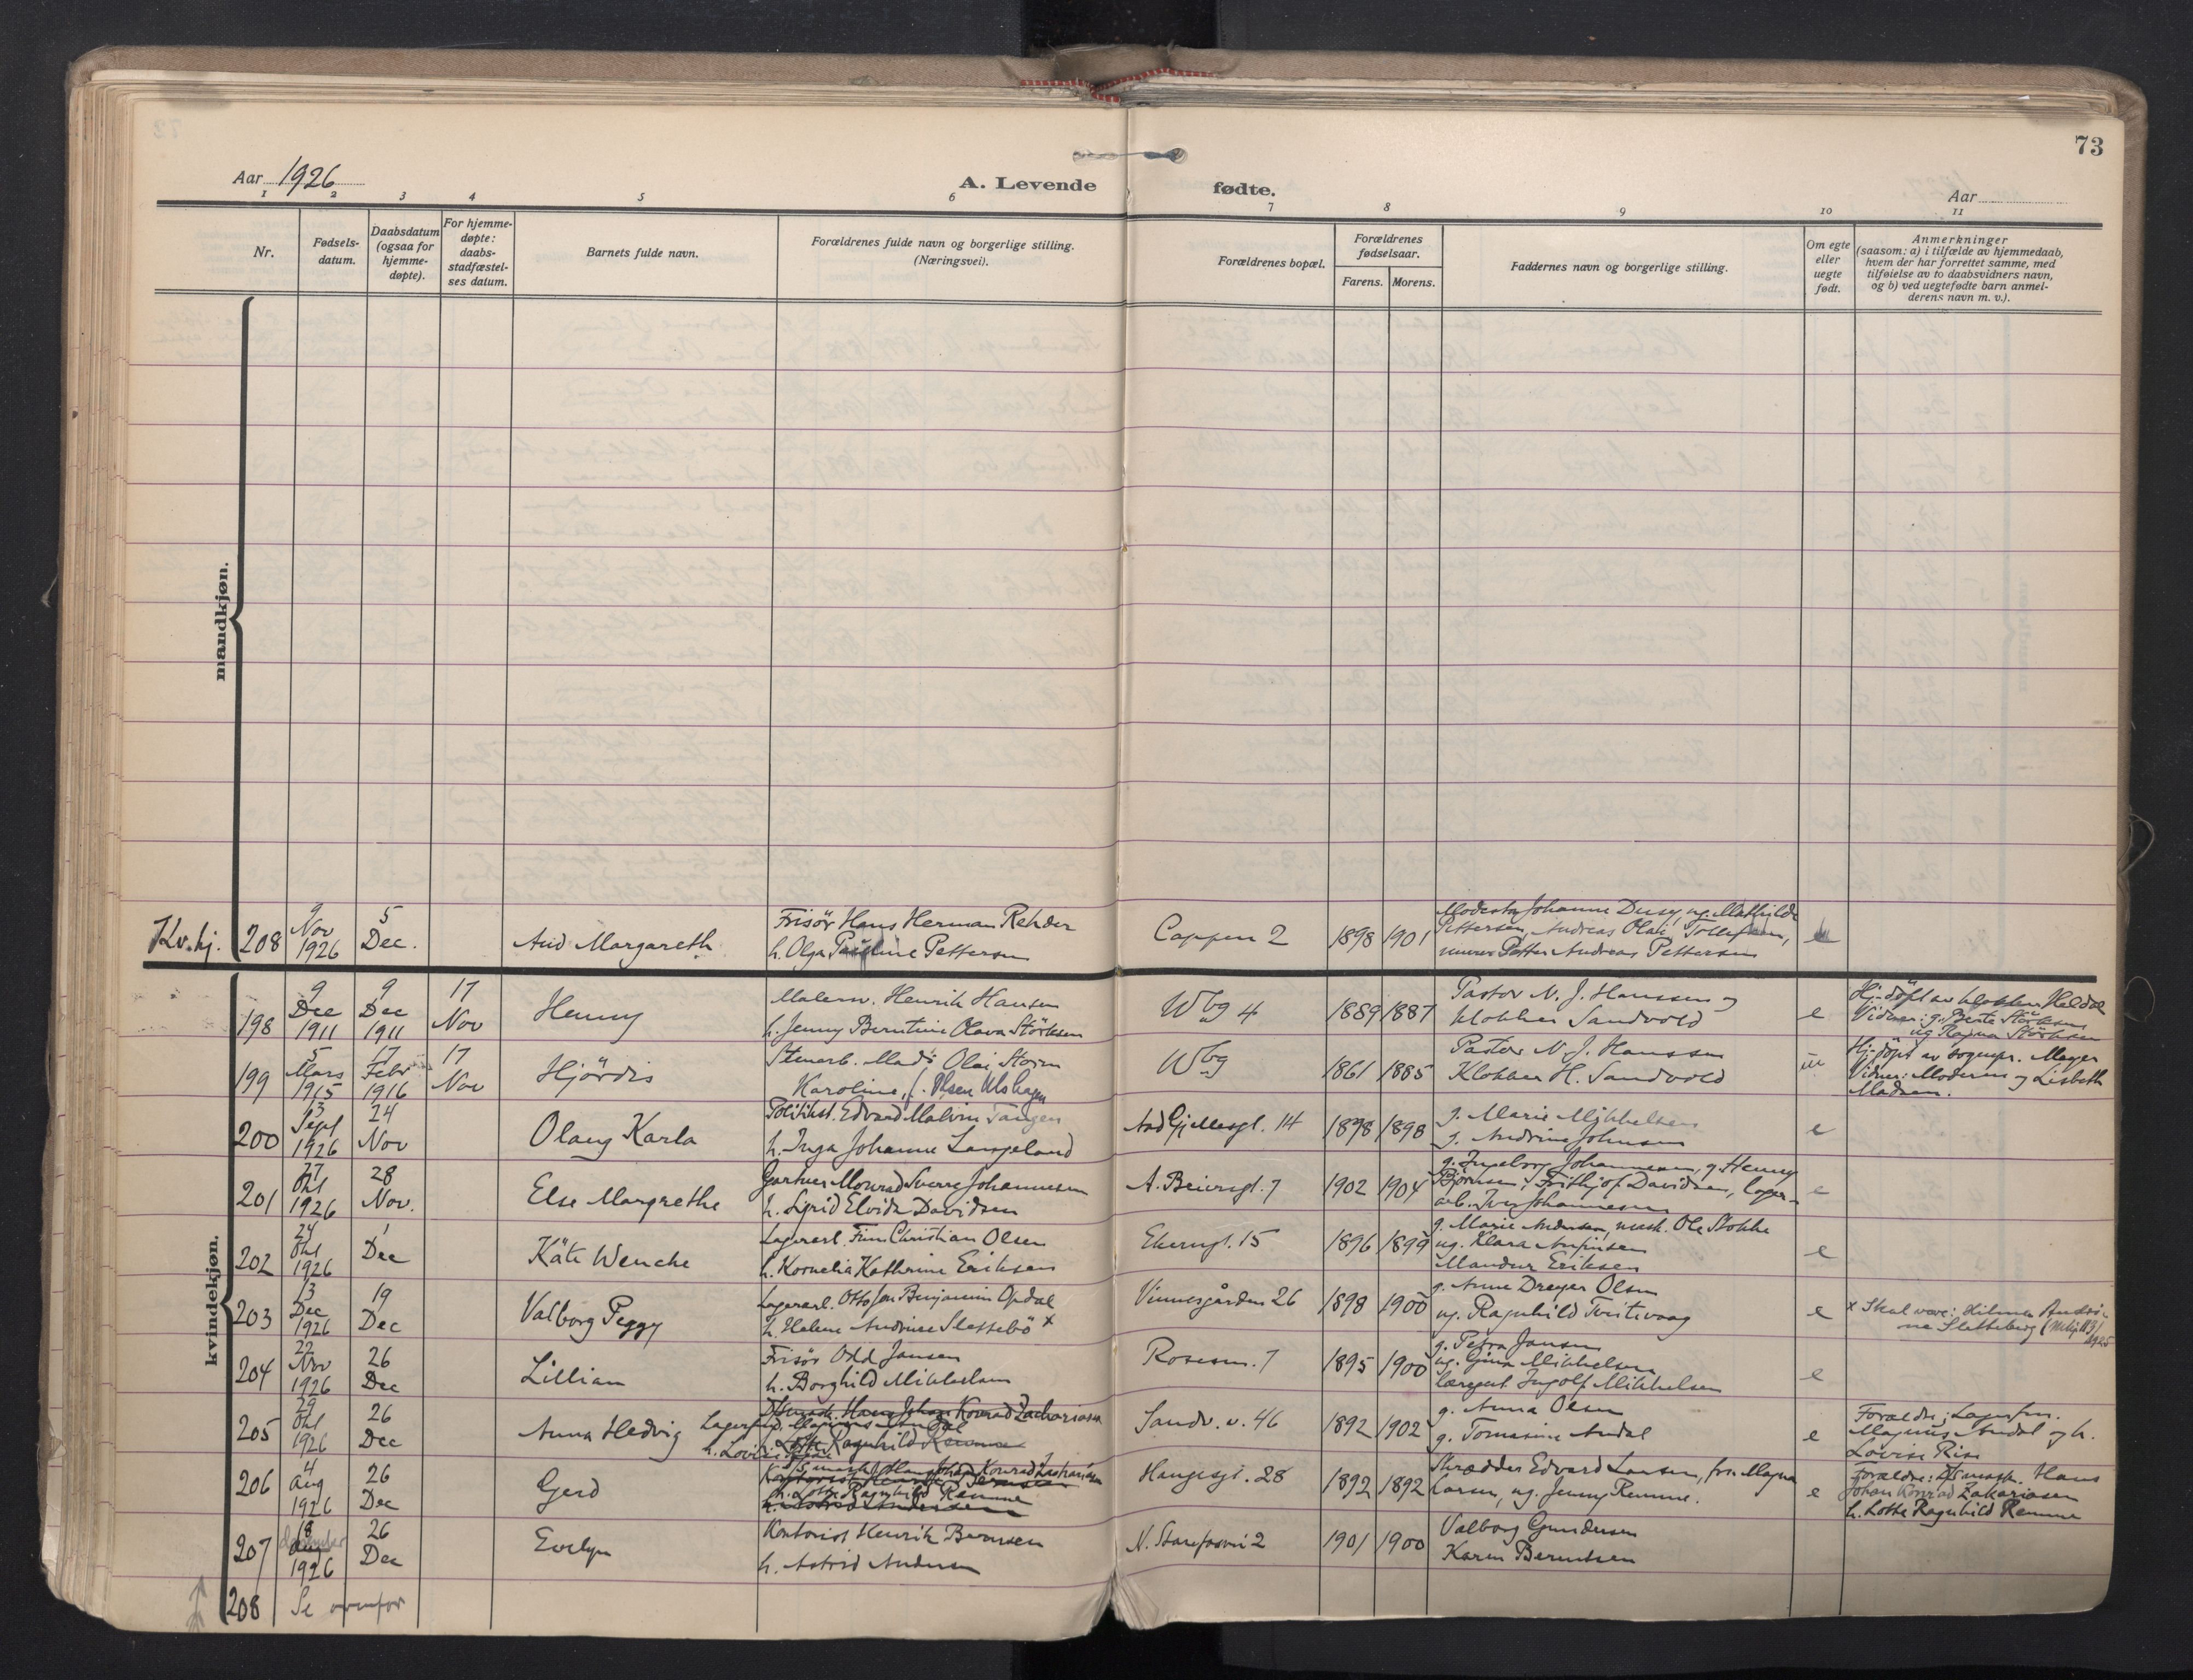 73
Aar 1926
A. Levende fødte.
Aar
1 2 3 4 5 6 7 8 9 10 11
Nr.
Fødsels-
datum.
Daabsdatum
(ogsaa for
hjemme-
døpte).
For hjemme-
døpte:
daabs-
stadfæstel-
ses datum.
Barnets fulde navn.
Forældrenes fulde navn og borgerlige stilling.
(Næringsvei).
Forældrenes bopæl.
Forældrenes
fødselsaar.
Farens. Morens.
Faddernes navn og borgerlige stilling.
Om egte
eller
uegte
født.
Anmerkninger
(saasom: a) i tilfælde av hjemmedaab,
hvem der har forrettet samme, med
tilføielse av to daabsvidners navn,
og b) ved uegtefødte barn anmel-
derens navn m. v.).
mandkjøn.
Kv. kj. 208
9 Nov 1926
5 Dec.
Aud Margareth
Frisör Hans Herman Rehder
h. Olga Pauline Pettersen
Cappen 2
1898 1901
Johanne ug. Mathilde
Pettersen, Andreas Olai
murer Petter Andreas Pettersen
kvindekjøn.
198
9 Dec 1911
9 Dec 1911
17 Nov
Henny
Malersv. Henrik Hansen
h. Jenny Berntine Olava Störksen
Wbg 4
1889 1887
Pastor N. J. Hanssen og
klokker Sandvold
e
Hj-döpt av klokker Heldal
Vidner: g. Berte Störksen
ug Ragna Störksen
199
5 Mars 1915
17 Febr 1916
17 Nov
Hjördis
Stenarb. Mads Olai Storm
Karoline, f. Olsen Ulshagen
Wbg
1861 1885
Pastor N. J. Hanssen
Klokker H. Sandvold
Hj-döpt av sognepr. Meyer
Vidner: Moderen og Lisbeth
Madsen.
200
13 Sept 1926
24 Nov
Olaug Karla
Politikst. Edvard Malvin Tangen
h. Inga Johanne Langeland
Aad Gjellesgt. 14
1898 1898
g. Marie Mikkelsen
g. Andrine Johnsen
e
201
27 Okt 1926
28 Nov.
Else Margrethe
Gartner Monrad Sverre Johannesen
h. Sigrid Elvida Davidsen
A. Beiersgt. 7
1902 1904
g. Ingeborg Johannesen, g. Henny
Björnsen, Frithjof Davidsen, lager-
arb. Iver Johannesen
e
202
24 Okt 1926
1 Dec
Käte Wenche
Lagerarb. Finn Christian Olsen
h. Kornelia Kathrine Eriksen
Ekerngt. 15
1896 1899
g. Marie Andersen, mask. Ole Stokke
ug. Klara
Eriksen
e
203
13 Dec 1926
19 Dec
Valborg Peggy
Lagerarb. Otto Jon Benjamin Opdal
h. Helene Andrine Slettebö x
Vinnesgården 26
1898 1900
g. Anne Dreyer Olsen
ug. Ragnhild Tveitevaag
e
x Skal være: Andri-
ne Slettebø
204
22 Nov 1926
26 Dec
Lillian
Frisör Odd Jansen
h. Borghild Mikkelsen
Rosesm. 7
1895 1900
g. Petra Jansen
ug. Gina Mikkelsen
Ingolf Mikkelsen
e
205
29 Okt 1926
26 Dec
Anna Hedvig
D/smask. Hans Johan Konrad Zachariasen
Lagerfmd. Magnus Andal
h. Lotte Ragnhild Remme
h. Lovise Riise
Sandv. v. 46
1892 1902
g. Anna Olsen
g. Tomasine Andal
e
Forældre: Lagerfm.
Magnus Andal og h.
Lovise Riise
206
4 Aug 1926
26 Dec
Gerd
D/S mask. Hans Johan Konrad Zachariasen
h. Lotte Ragnhild Remme
h. Astrid Andersen
Haugesgt. 28
1892 1892
Skrædder Edvard Larsen, fru Magna
Larsen, ug. Jenny Remme.
e
Forældre: D/S mask. Hans
Johan Konrad Zakariasen
h. Lotte Ragnhild Remme
207
18 december Aug 1926
26 Dec
Evelyn
Kontorist Henrik Berntsen
h. Astrid Andersen
N. Starefosvei 2
1901 1900
Valborg Gundersen
Karen Berentsen
208 Se ovenfor